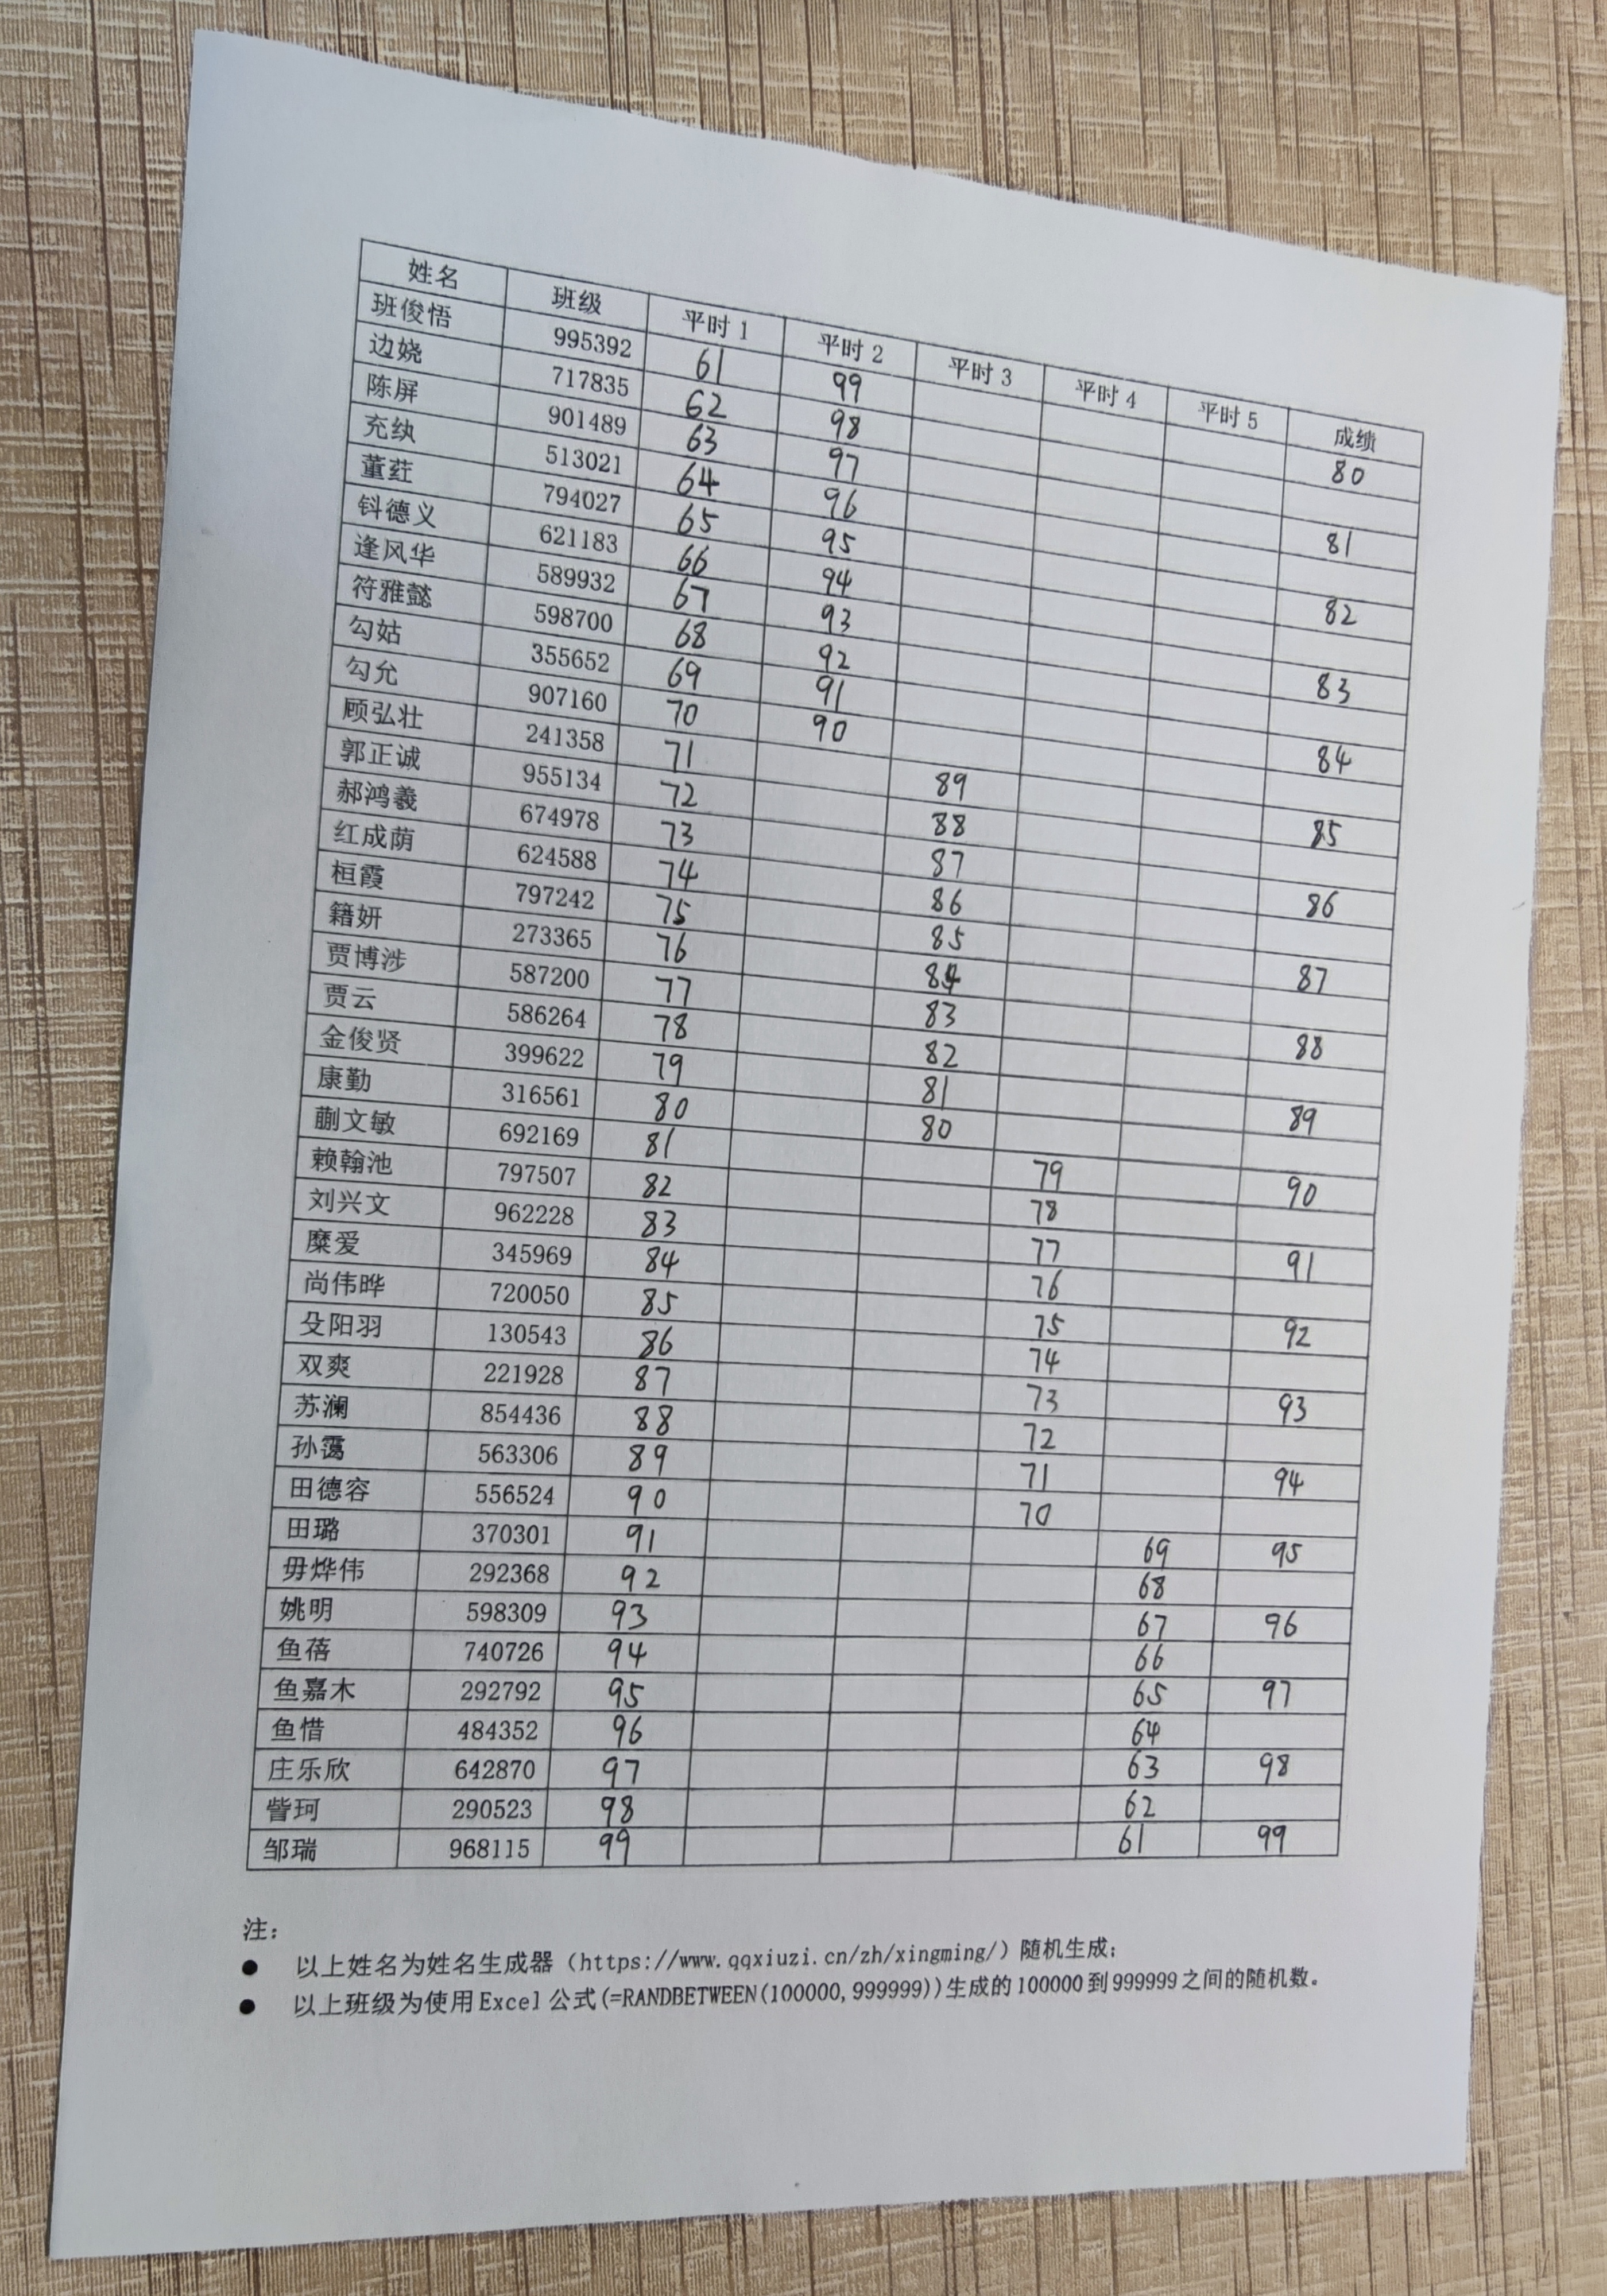 姓名 班级 平时1 平时2 平时3 平时4 平时5 成绩
班俊悟 995392 61 99 80
边娆 717835 62 98
陈屏 901489 63 97 81
充纨 513021 64 96
董荭 794027 65 95 82
钭德义 621183 66 94
逢风华 589932 67 93 83
符雅懿 598700 68 92
勾姑 355652 69 91 84
勾允 907160 70 90
顾弘壮 241358 71 89 85
郭正诚 955134 72 88
郝鸿羲 674978 73 87 86
红成荫 624588 74 86
桓霞 797242 75 85 87
籍妍 273365 76 84
贾博涉 587200 77 83 88
贾云 586264 78 82
金俊贤 399622 79 81 89
康勤 316561 80 80
蒯文敏 692169 81 79 90
赖翰池 797507 82 78
刘兴文 962228 83 77 91
糜爱 345969 84 76
尚伟晔 720050 85 75 92
殳阳羽 130543 86 74
双爽 221928 87 73 93
苏澜 854436 88 72
孙霭 563306 89 71 94
田德容 556524 90 70
田璐 370301 91 69 95
毋烨伟 292368 92 68
姚明 598309 93 67 96
鱼蓓 740726 94 66
鱼嘉木 292792 95 65 97
鱼惜 484352 96 64
庄乐欣 642870 97 63 98
訾珂 290523 98 62
邹瑞 968115 99 61 99
注：
● 以上姓名为姓名生成器（https://www.qqxiuzi.cn/zh/xingming/）随机生成；
● 以上班级为使用Excel公式(=RANDBETWEEN(100000,999999))生成的100000到999999之间的随机数。